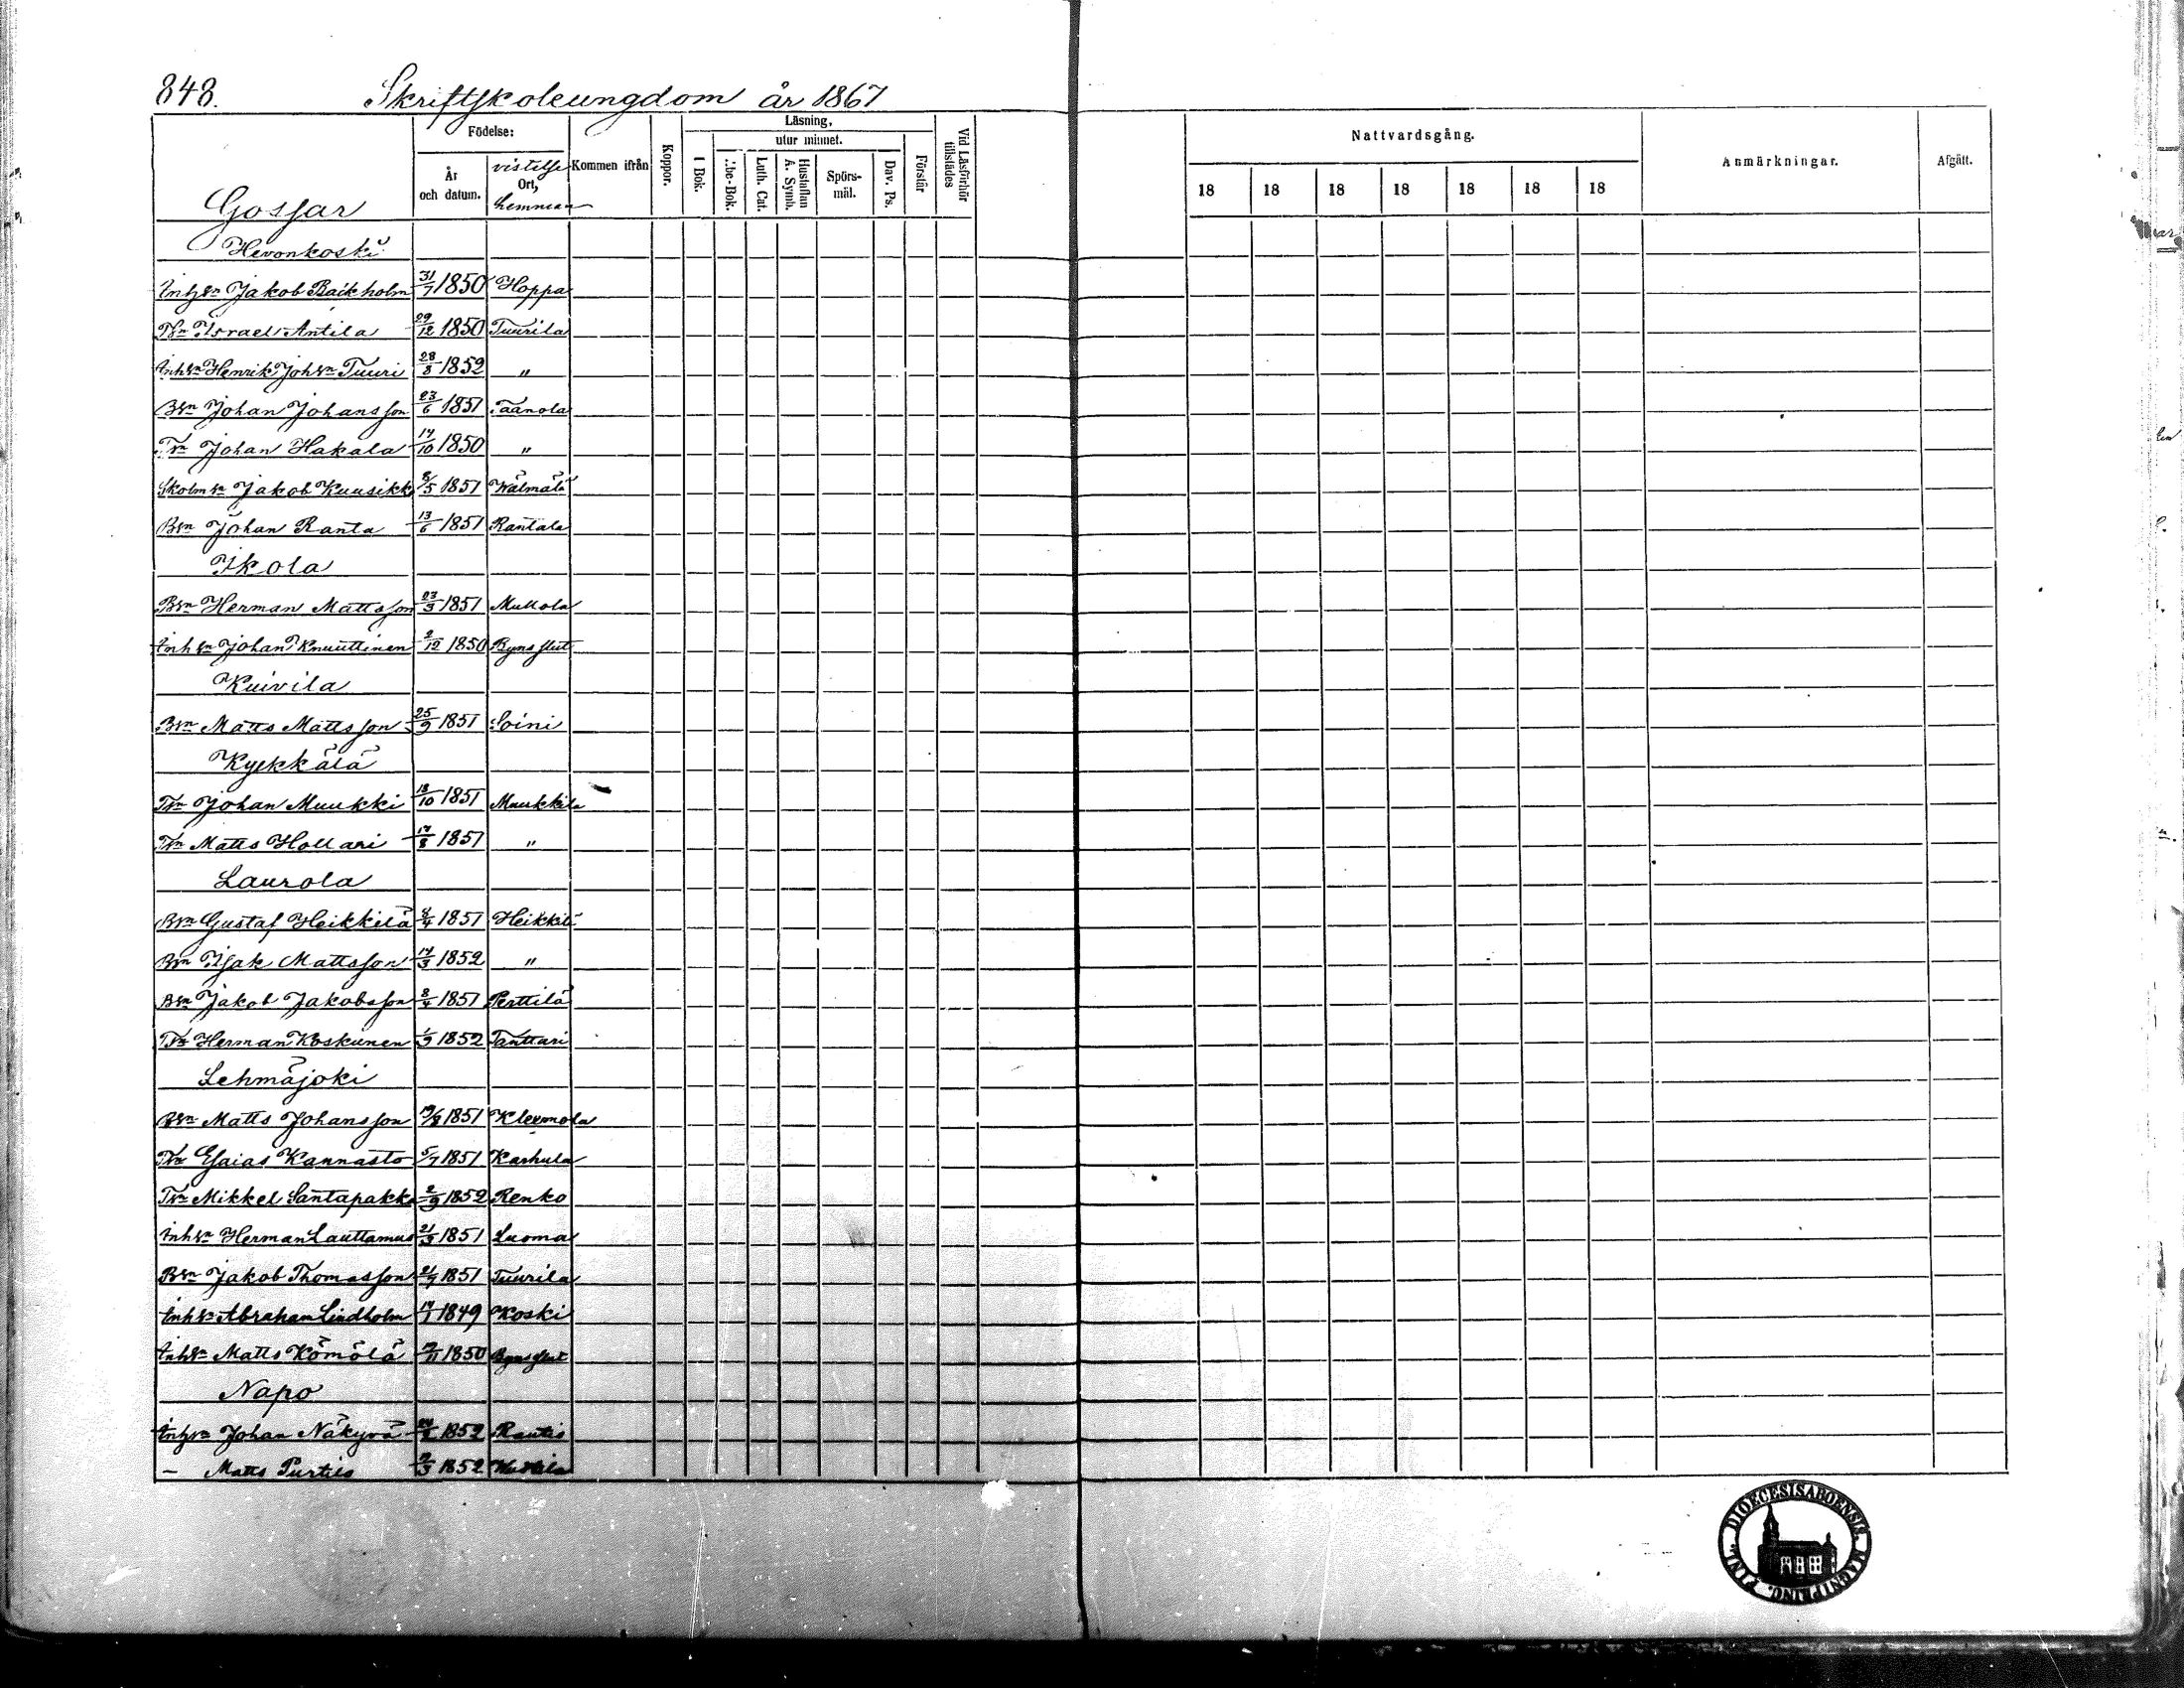 848. Skriftskoleungdom år 1867
Födelse:
År och datum.
vistelse Ort, hemman
Kommen ifrån
Koppor.
Läsning,
I Bok.
utur minnet.
Abc-Bok.
Luth. Cat.
Hustaflan A. Symb.
Spörsmål.
Dav. Ps.
Förstår
Vid Läsförhör tillstädes
Nattvardsgång.
18 18 18 18 18 18 18
Anmärkningar.
Afgått.
Gossar
Hevonkoski
Inhsn Jakob Backholm 31/7 1850 Hoppa
Tsn Israel Antila 29/12 1850 Tuurila
Inhsn Henrik Johsn Tuuri 28/8 1852 "
Bsn Johan Johansson 23/6 1851 Taanola
Tsn Johan Hakala 14/10 1850 "
Skolmsn Jakob Kuusikko 8/5 1851 Wälmälä
Bsn Johan Ranta 13/6 1851 Rantala
Ikola
Bsn Herman Mattsson 23/3 1851 Mullola
Inhsn Johan Knuuttinen 2/12 1850 Byns slut
Kuivila
Bsn Matts Mattsson 25/9 1851 Soini
Kyekkälä
Tsn Johan Muukki 18/10 1851 Muukkila
Tsn Matts Hollari 17/8 1851 "
Laurola
Bsn Gustaf Heikkilä 4/4 1851 Heikkilä
Bsn Isak Mattsson 14/3 1852 "
Bsn Jakob Jakobsson 8/4 1851 Perttilä
Tsn Herman Koskinen 1/3 1852 Tanttari
Lehmäjoki
Bsn Matts Johansson 19/8 1851 Kleemola
Tsn Esaias Kannasto 5/7 1851 Karhula
Tsn Mikkel Santapakka 2/9 1852 Renko
Inhsn Herman Lauttamus 21/3 1851 Luoma
Bsn Jakob Thomasson 21/9 1851 Tuurila
Inhsn Abraham Lindholm 14/1 1849 Koski
Inhsn Matts Kömölä /11 1850 Byns slut
Napo
Inhsn Johan Näkyvä 1852 Rautis
– Matts Purtilo 2/3 1852
FINL. DIOECESIS ABOENSIS. MAGNI PRINC.